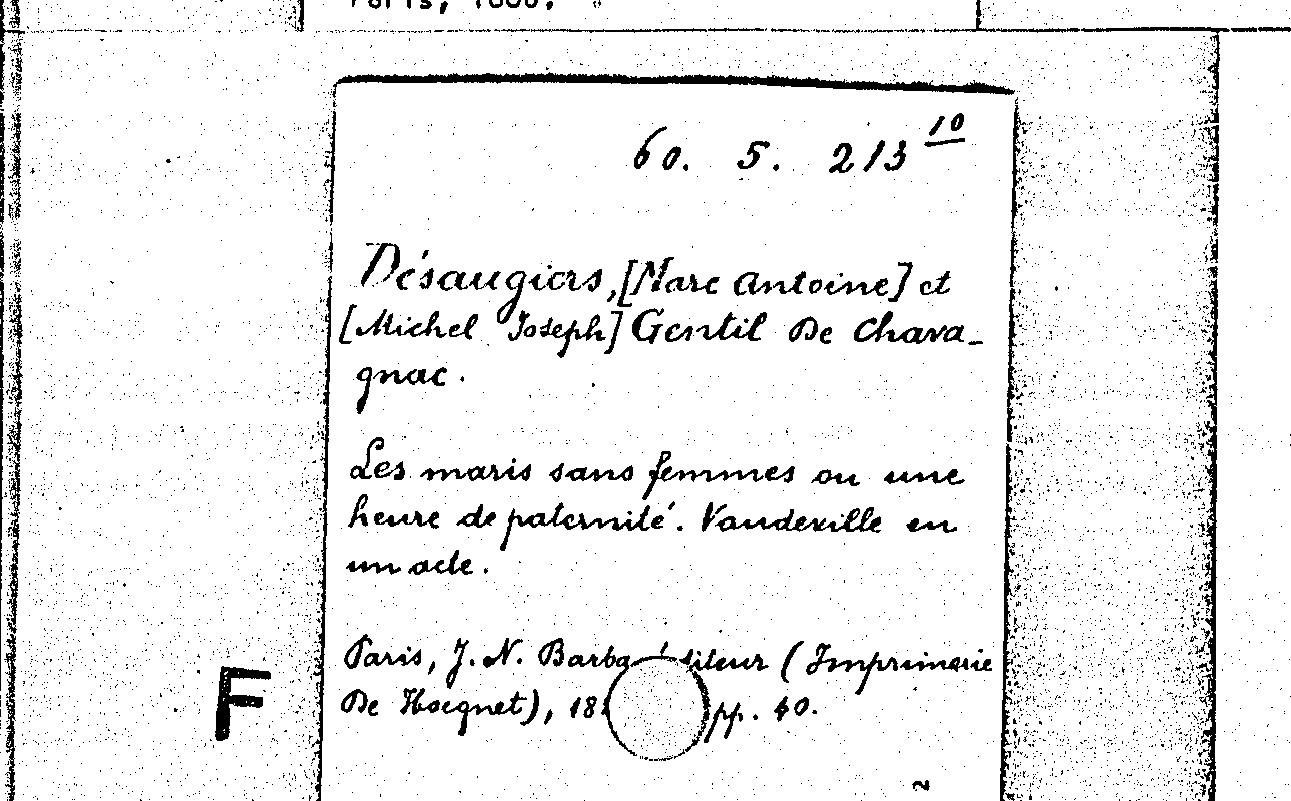 60. 5. 213 10
Désaugiers, [Marc Antoine] et
[Michel Joseph] Gentil De Chava-
gnac.
Les maris sans femmes ou une
heure de paternité. Vaudeville en
un acte.
Paris, J. N. (Imprimerie
De Hocquet), pp. 40.
F
2